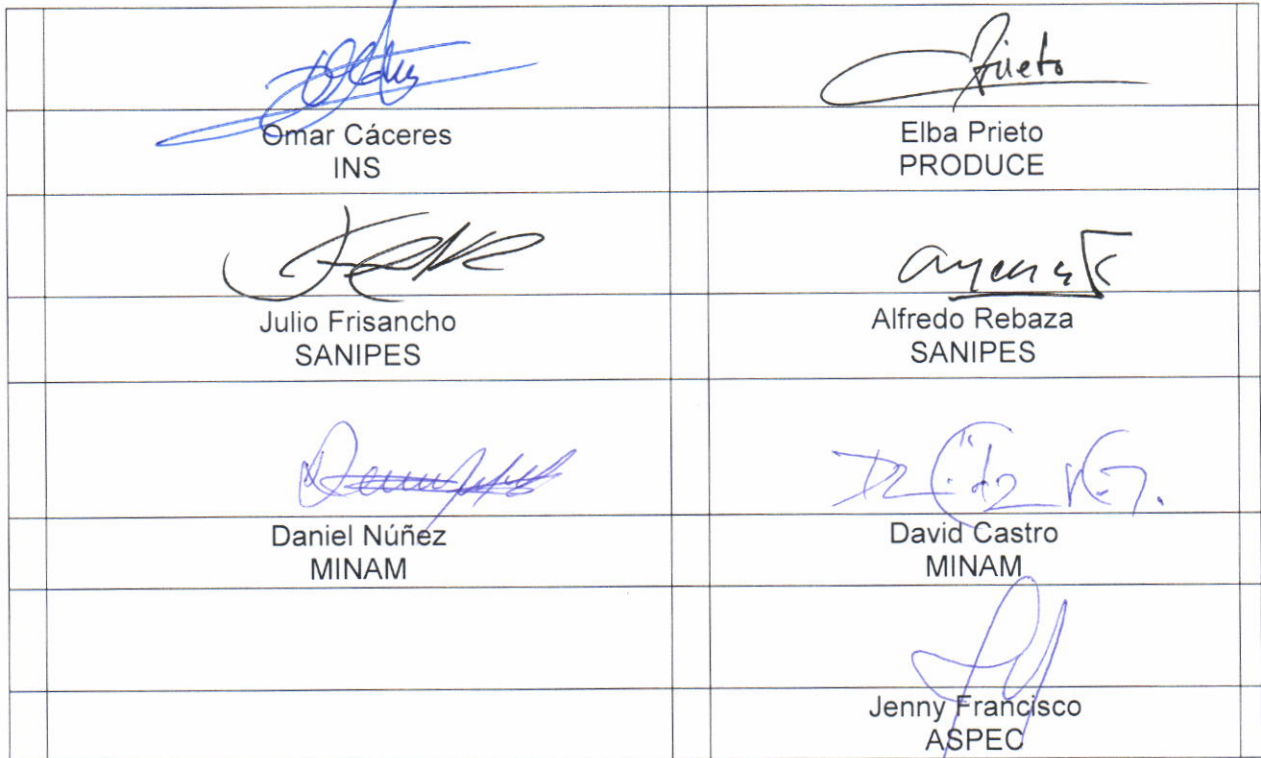 Omar Cáceres
INS
Prieto
Elba Prieto
PRODUCE
Julio Frisancho
SANIPES
Alfredo Rebaza
SANIPES
Daniel Núñez
MINAM
David Castro
MINAM
Jenny Francisco
ASPEC